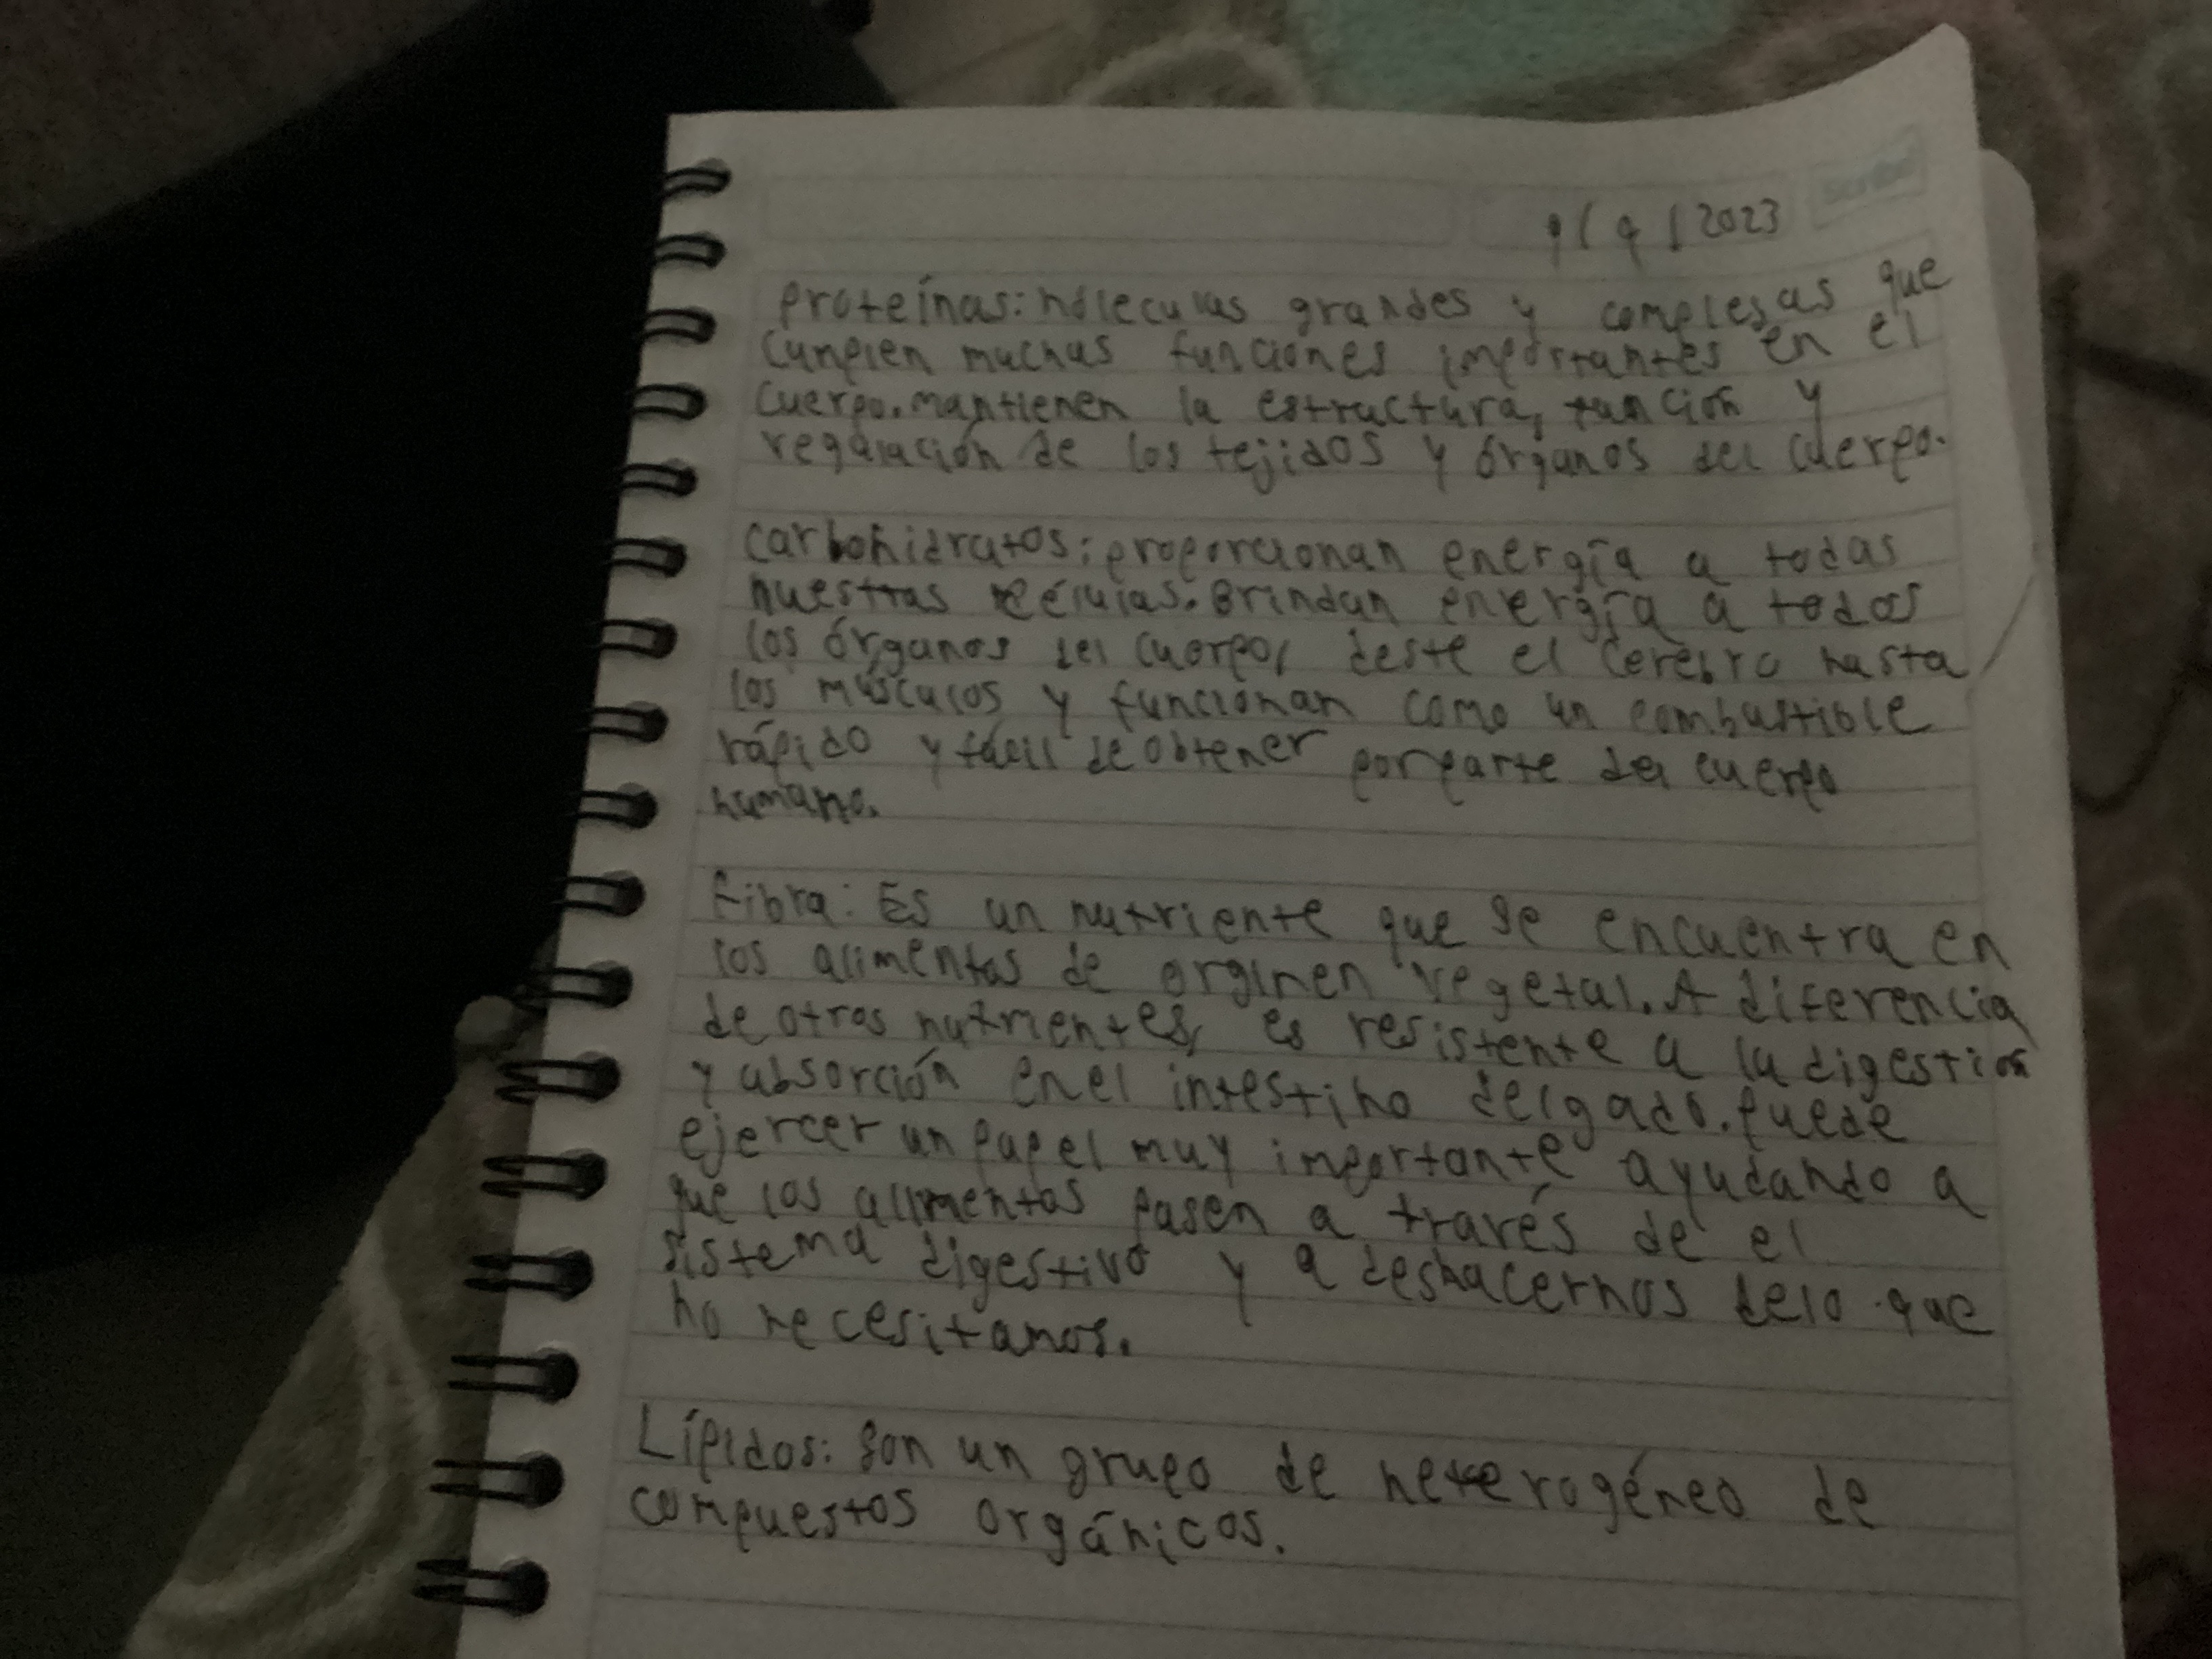 9/9/2023
Scribe
proteínas: móleculas grandes y complesas que
cumplen muchas funciones importantes en el
cuerpo. mantienen la estructura, función y
regulación de los tejidos y órganos del cuerpo.
carbohidratos: proporcionan energía a todas
nuestras células. Brindan energía a todos
los órganos del cuerpo, deste el cerebro hasta
los músculos y funcionan como un combustible
rápido y fácil de obtener por parte del cuerpo
humano.
Fibra: Es un nutriente que se encuentra en
los alimentos de orginen vegetal. A diferencia
de otros nutrientes, es resistente a la digestión
y absorción en el intestino delgado. Puede
ejercer un papel muy importante ayudando a
que los alimentos pasen a través de el
sistema digestivo y a deshacernos delo que
no necesitamos.
Lípidos: son un grupo de heterogéneo de
compuestos orgánicos.